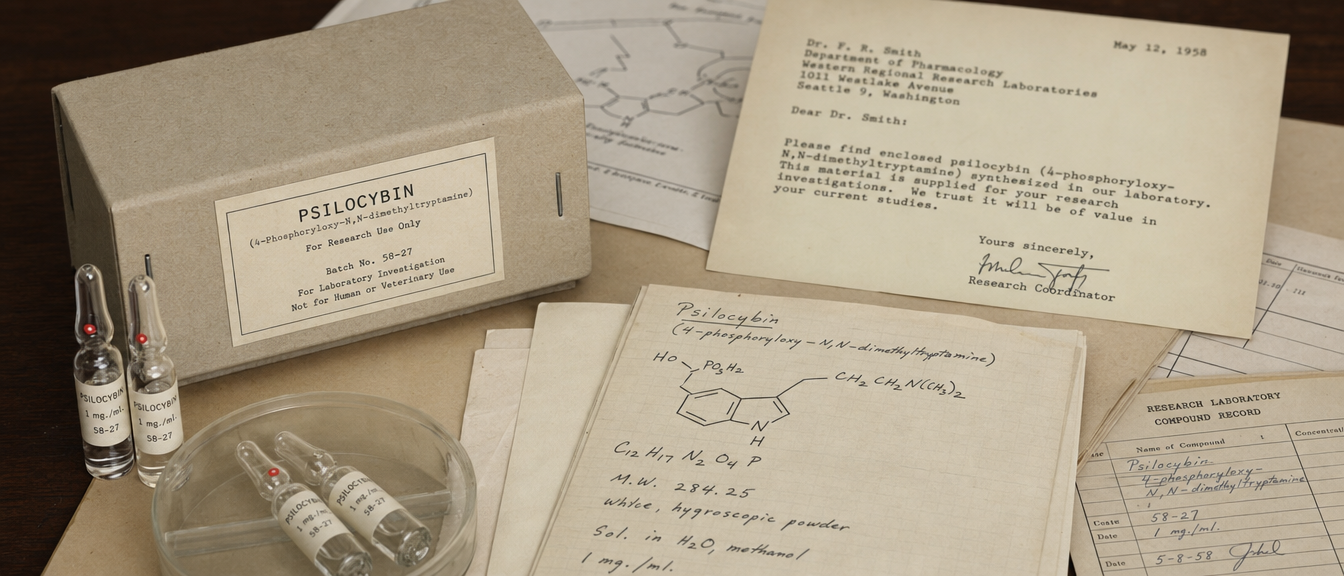 PSILOCYBIN
(4-Phosphoryloxy-N,N-dimethyltryptamine)
For Research Use Only
Batch No. 58-27
For Laboratory Investigation
Not for Human or Veterinary Use
PSILOCYBIN
1 mg./ml.
58-27
PSILOCYBIN
1 mg./ml.
58-27
PSILOCYBIN
1 mg./
58-27
PSILOCYBIN
1 mg./
58-27
May 12, 1958
Dr. F. R. Smith
Department of Pharmacology
Western Regional Research Laboratories
1011 Westlake Avenue
Seattle 9, Washington
Dear Dr. Smith:
Please find enclosed psilocybin (4-phosphoryloxy-
N,N-dimethyltryptamine) synthesized in our laboratory.
This material is supplied for your research
investigations. We trust it will be of value in
your current studies.
Yours sincerely,
Research Coordinator
Psilocybin
(4-phosphoryloxy-N,N-dimethyltryptamine)
HO
PO3H2
CH2 CH2 N(CH3)2
N
H
C12 H17 N2 O4 P
M.W. 284.25
white, hygroscopic powder
Sol. in H2O, methanol
1 mg./ml.
Date
RESEARCH LABORATORY
COMPOUND RECORD
Name of Compound 1
Psilocybin
4-phosphoryloxy-
N,N-dimethyltryptamine
Coste 58-27
Date 1 mg./ml.
5-8-58